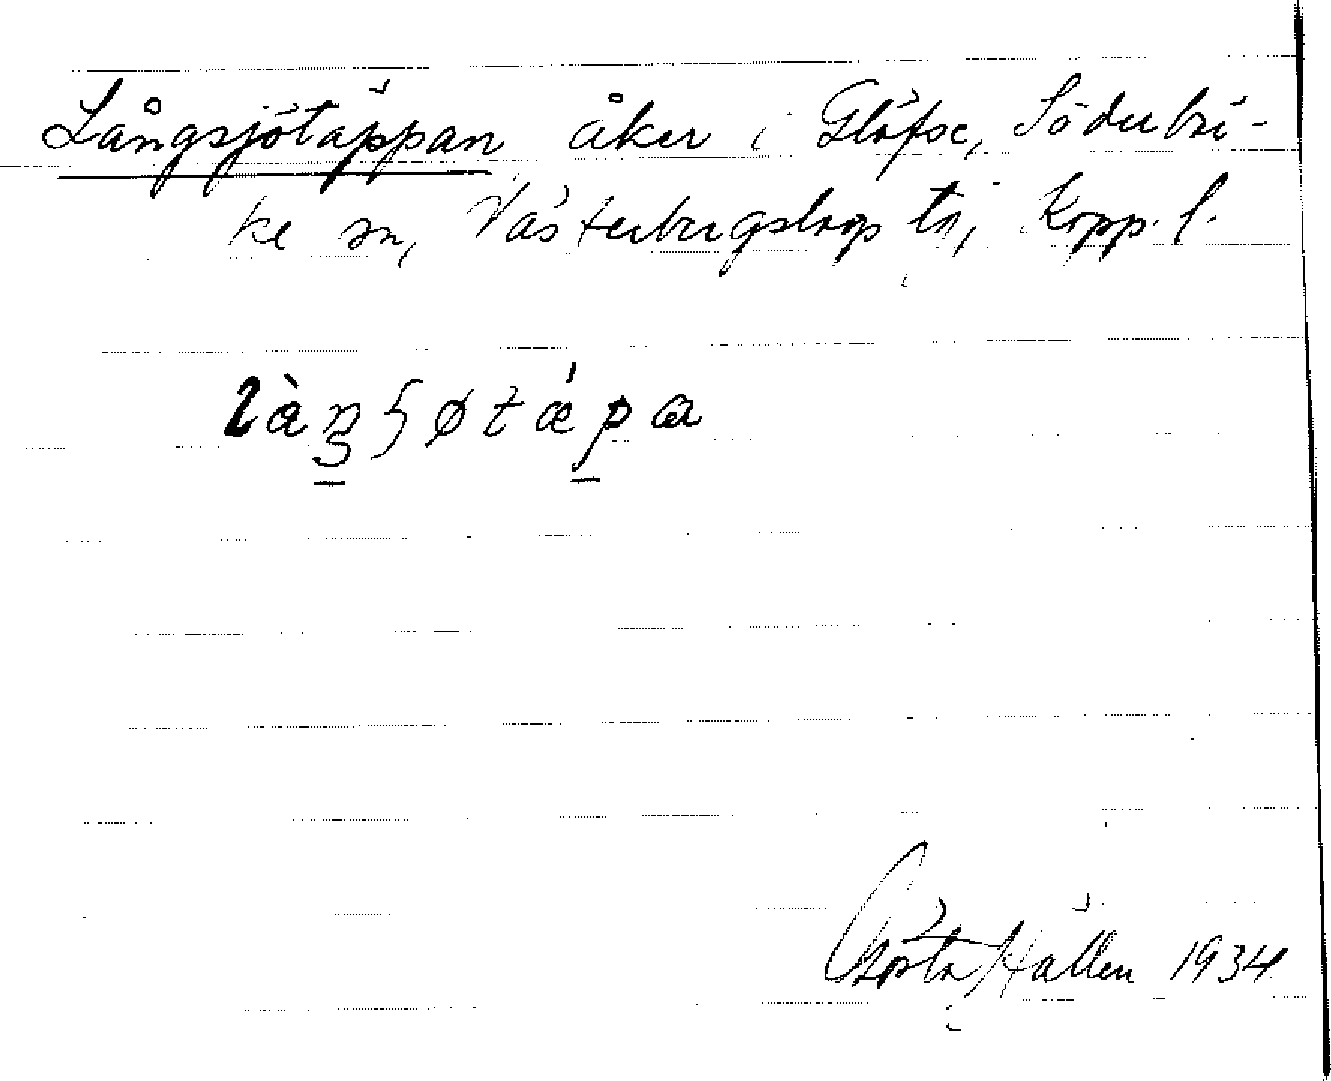 Långsjötäppan åker i Gläfse, Söderbär-
ke sn, Västerbergslags ts, Kopp. l.
làŋʂøtǽpa
Gösta Hällen 1934